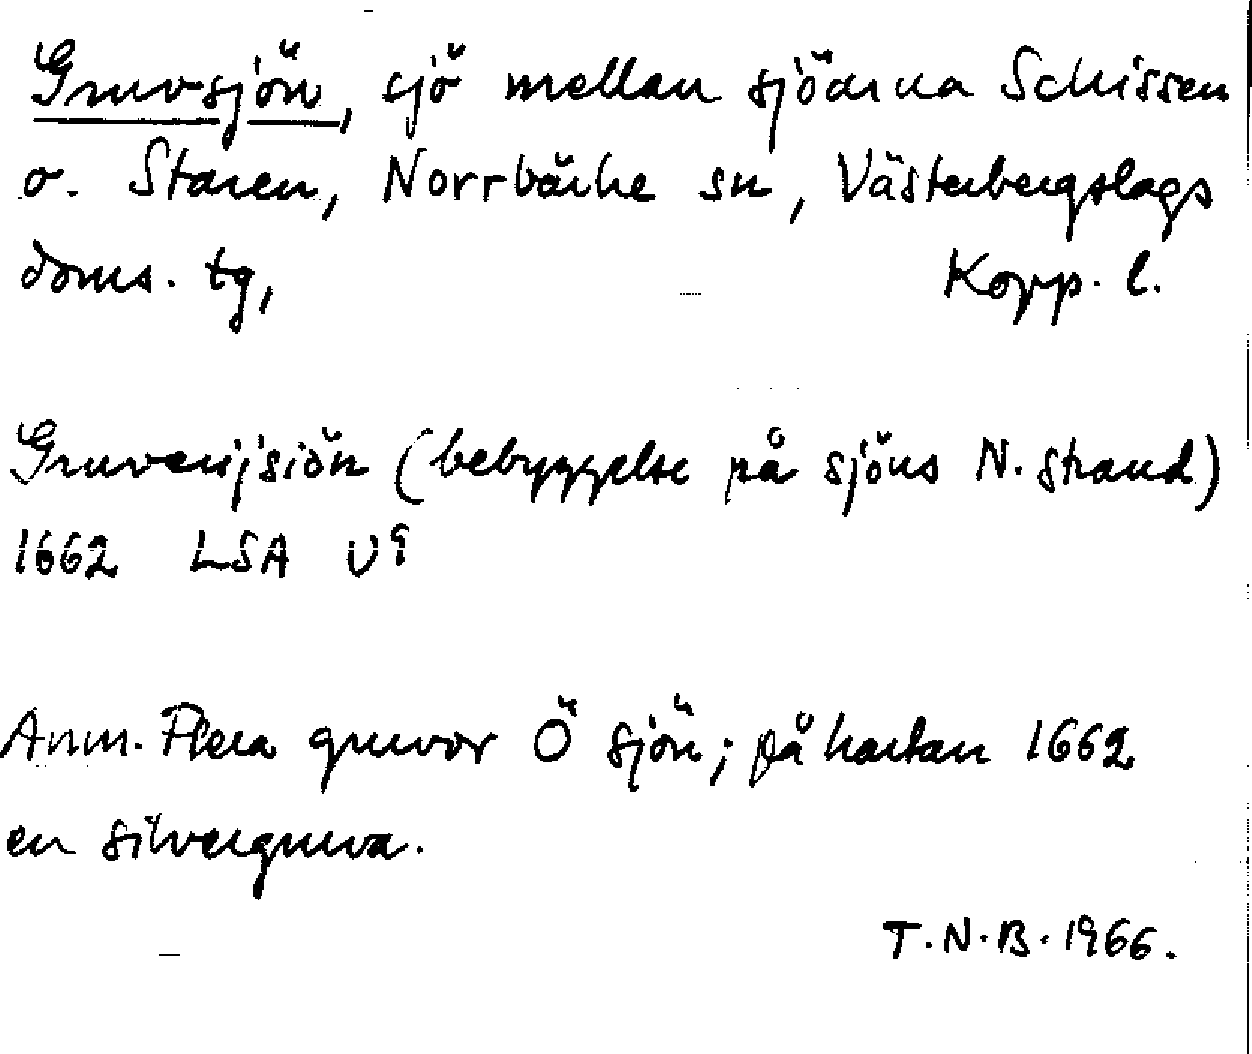 Gruvsjön, sjö mellan sjöarna Schissen
o. Staren, Norrbärke sn, Västerbergslags
doms. tg, Kopp. l.
Gruvesijsiön (bebyggelse på sjöns N. strand)
1662 LSA U9
Anm. Flera gruvor Ö sjön; på kartan 1662
en silvergruva.
T.N.B. 1966.